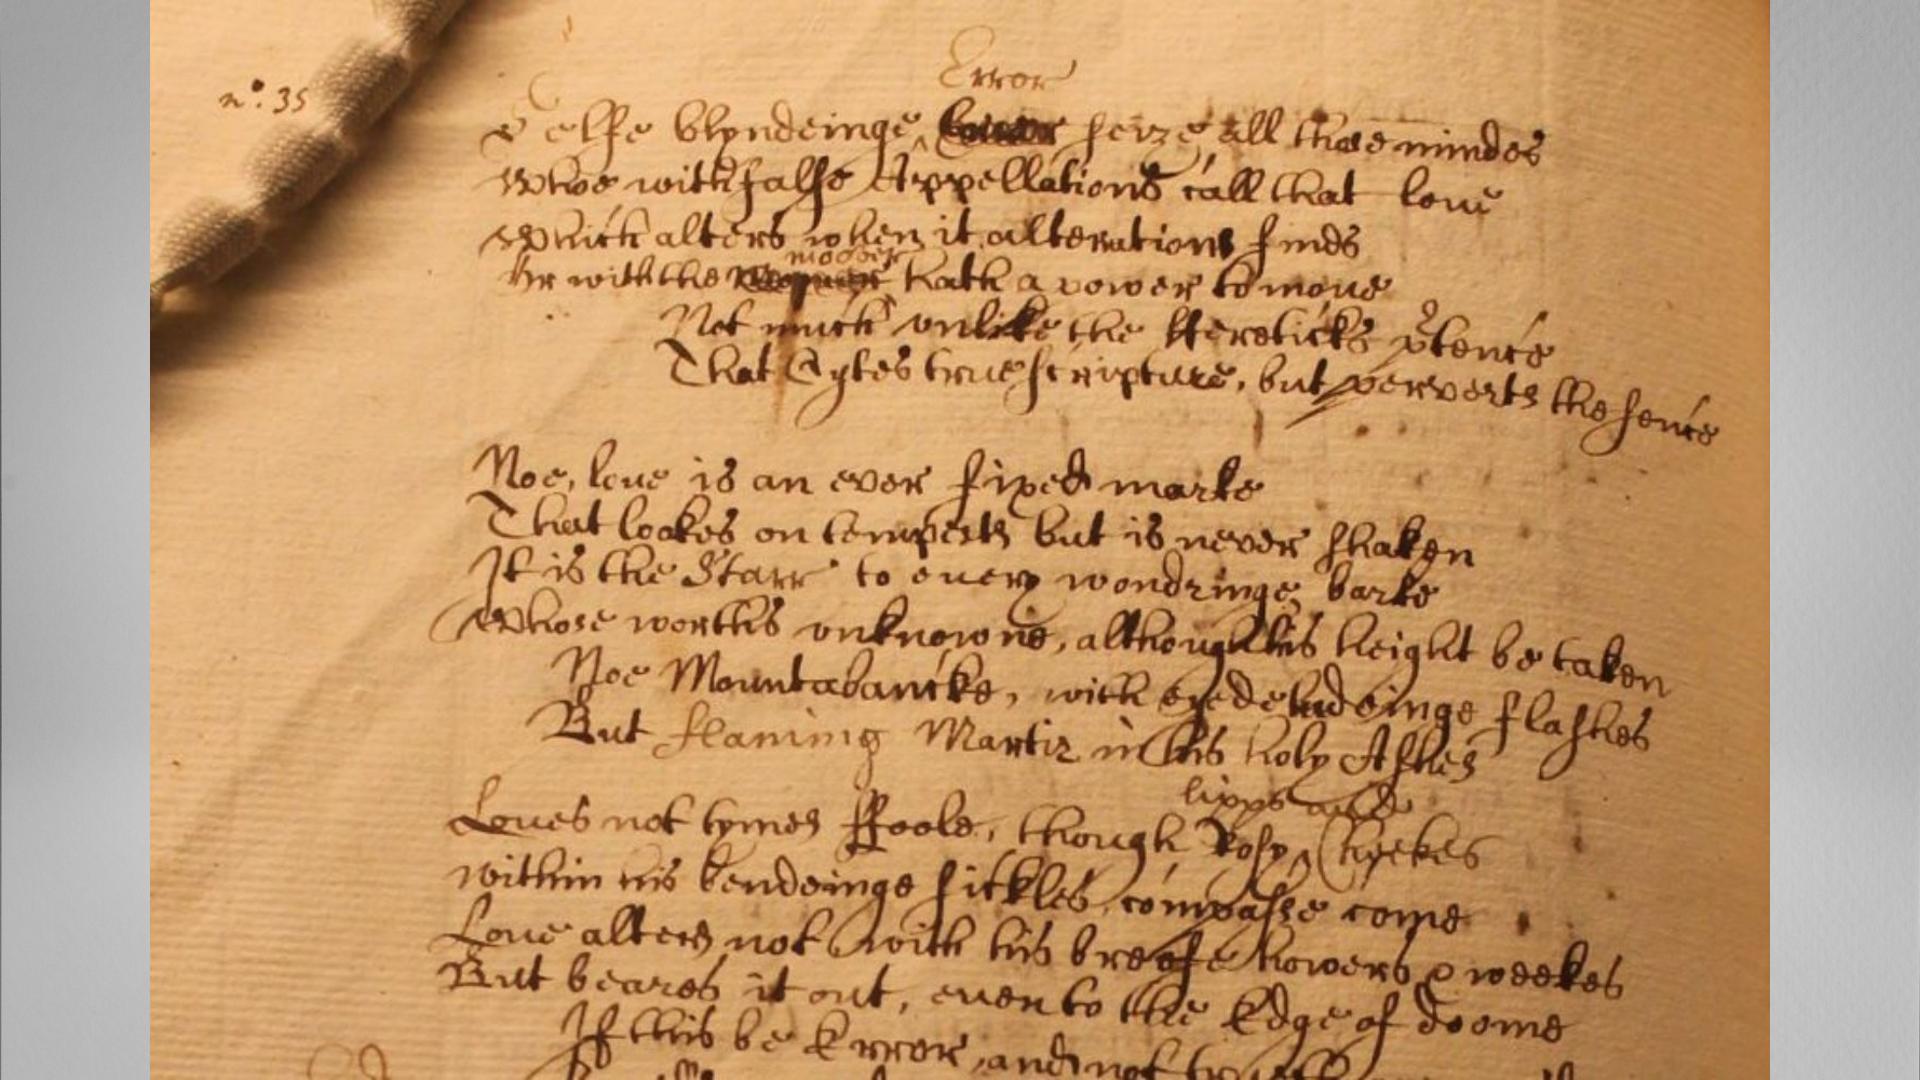 Error
n°. 35
Selfe blyndeinge seize all those mindes
Whoe with false Appellations call that loue
Which alters when it alterations finds
moover
Or with the hath a power to moue
Not much vnlike the Hereticks p͛tence
That Cytes true scripture, but perverts the sence
Noe, loue is an ever fixed marke
That lookes on tempests but is never shaken
It is the Starr to euery wondringe barke
Whose worths vnknowne, although his height be taken
Noe Mountabancke, with eyedeludeinge flashes
But flaming Martir in his holy Ashes
lipps and
Loues not tymes ffoole, though Rosy Cheekes
within his bendeinge sickles compasse come
Loue alters not with his breefe howers & weekes
But beares it out, euen to the Edge of doome
If this be Error, and not